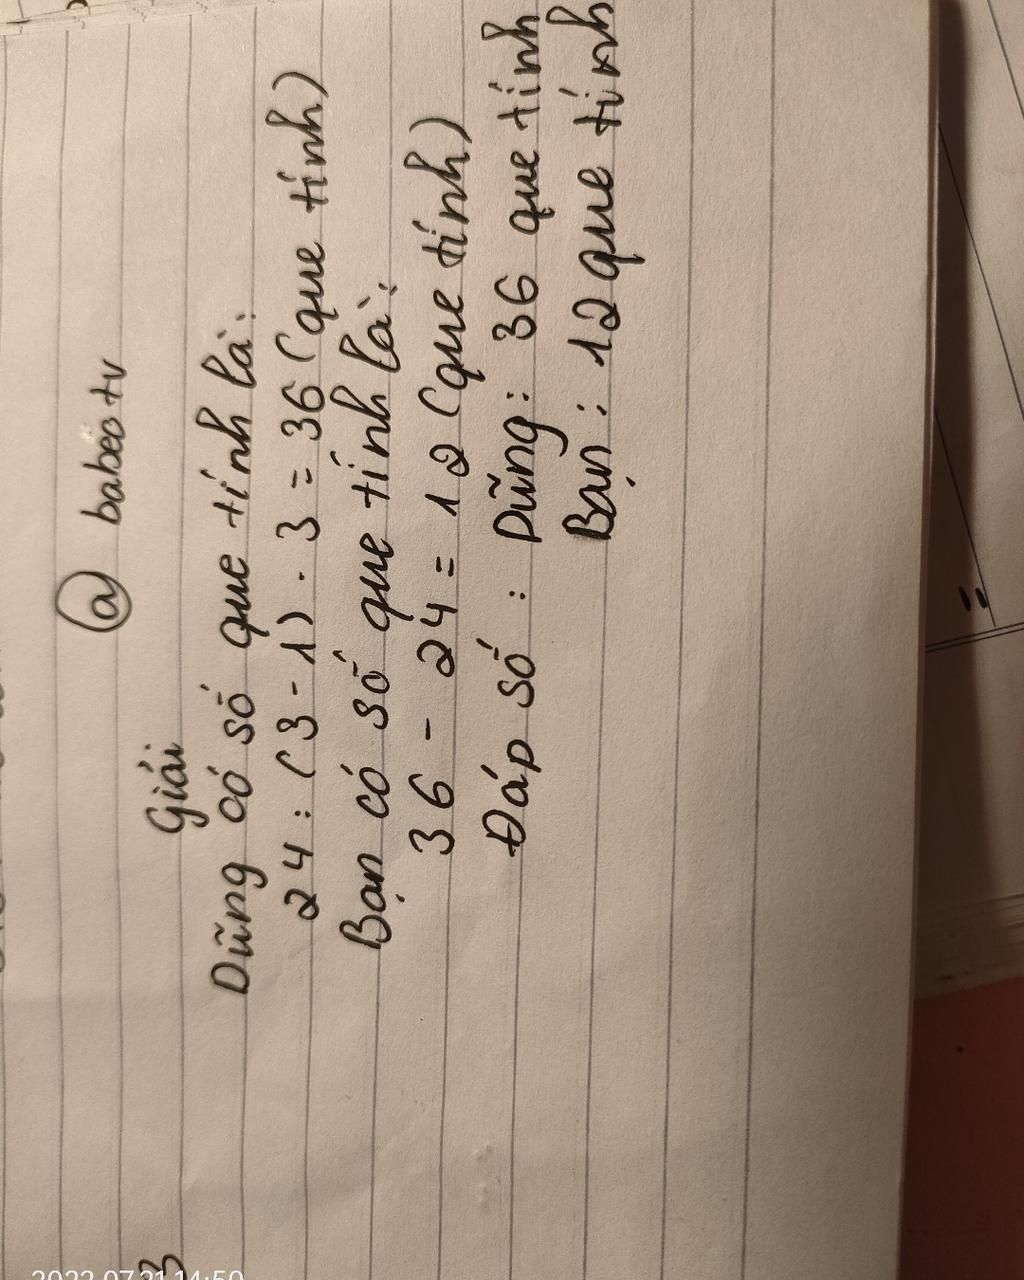 @ babeo tv
Giải
Dũng có số que tính là:
24 : (3 - 1) . 3 = 36 (que tính)
Bạn có số que tính là:
36 - 24 = 12 (que tính)
Đáp số : Dũng: 36 que tính
Bạn: 12 que tính
3
2022.07.21 14:50